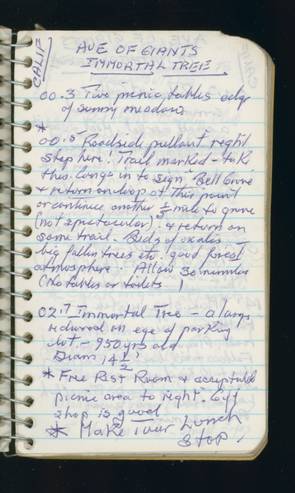 CALIF
AVE OF GIANTS
IMMORTAL TREE
00.3 Two picnic tables edge
of sunny meadow
*
00.5 Roadside pullout right
stop here! Trail marked - take
this longs in to sign "Bell Grove
& return on loop at this point
or continue another 1/2 mile to grove
(not spectacular) & return on
same trail. Beds of oxalis -
big fallen trees etc. good forest
atmosphere. Allow 30 minutes
(No tables or toilets)
02.7 Immortal Tree - a large
redwood on edge of parking
lot - 950 yrs old
Diam 14 1/2'
* Free Rest Room & acceptable
picnic area to right. Gift
shop is good
* Make your Lunch
Stop!